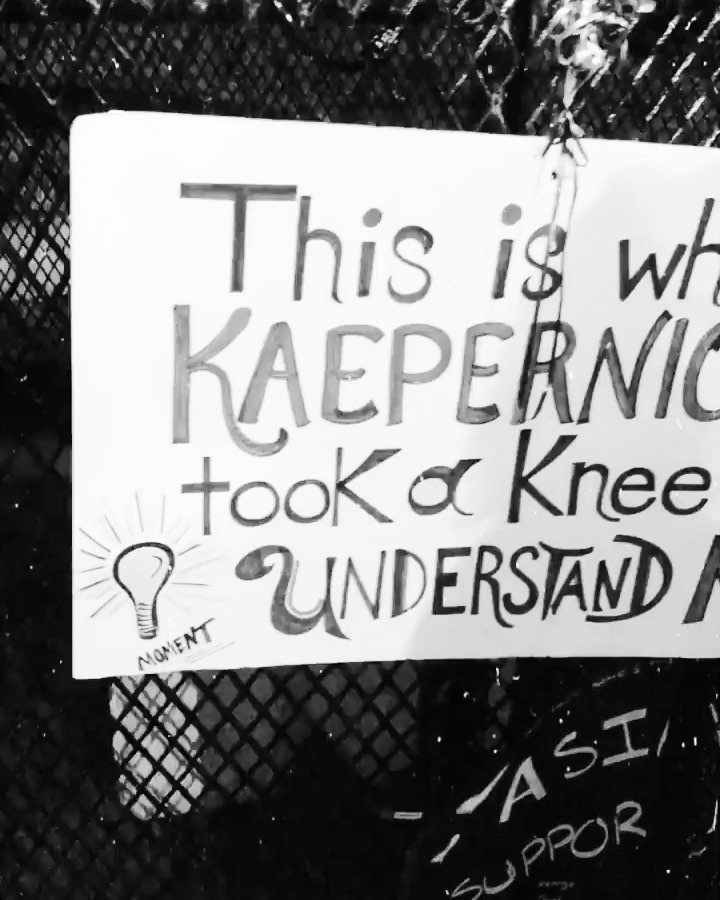 This is wh
KAEPERNIC
took a Knee
UNDERSTAND N
MOMENT
ASI
SUPPOR